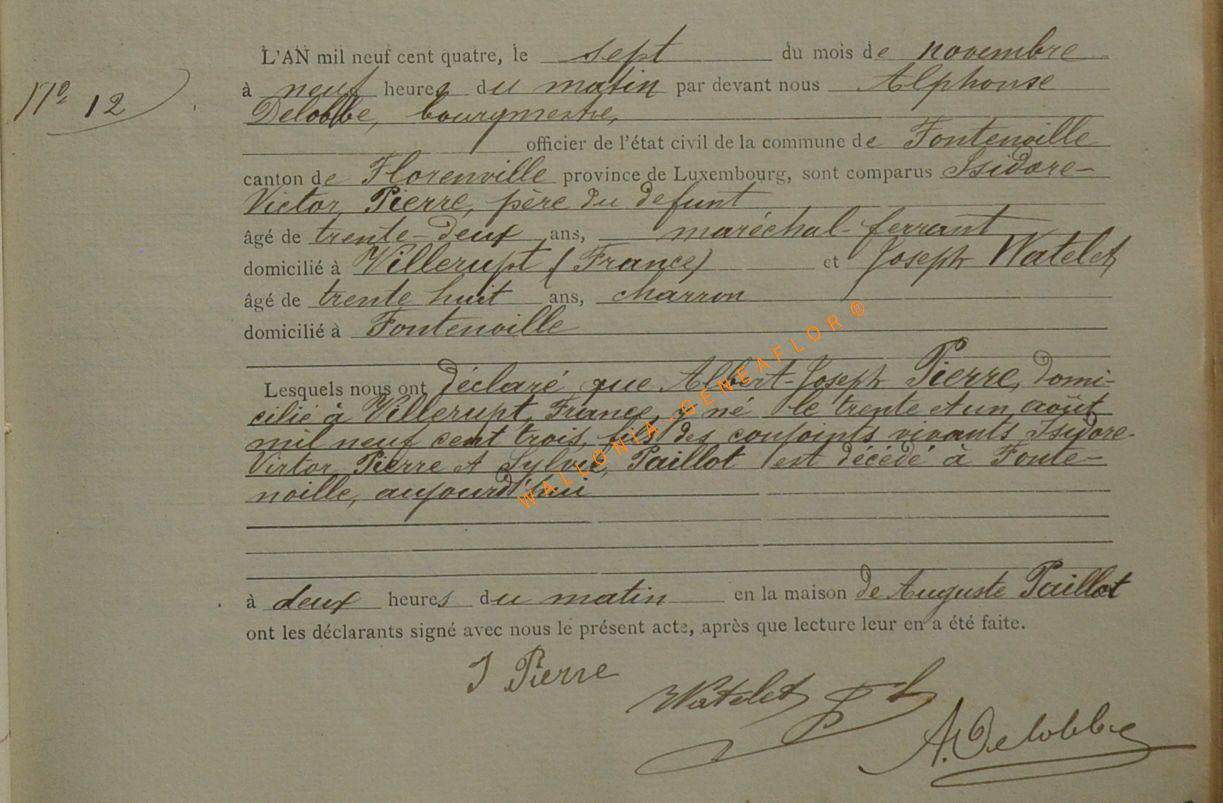 L'AN mil neuf cent quatre, le sept du mois de novembre
N° 12
à neuf heures du matin par devant nous Alphonse
Delobbe, bourgmestre,
officier de l'état civil de la commune de Fontenoille
canton de Florenville province de Luxembourg, sont comparus Isidore-
Victor Pierre, père du défunt
âgé de trente-deux ans, maréchal-ferrant
domicilié à Villerupt (France) et Joseph Watelet
âgé de trente huit ans, charron
domicilié à Fontenoille
Lesquels nous ont déclaré que Albert-Joseph Pierre, domi-
cilié à Villerupt, France, y né le trente et un août
mil neuf cent trois, fils des conjoints vivants Isidore-
Victor Pierre et Sylvie Paillot est décédé à Fonte-
noille, aujourd'hui
à deux heures du matin en la maison de Auguste Paillot
ont les déclarants signé avec nous le présent acte, après que lecture leur en a été faite.
J Pierre
Watelet J
A. Delobbe
WALLONIA-GENEAFLOR®